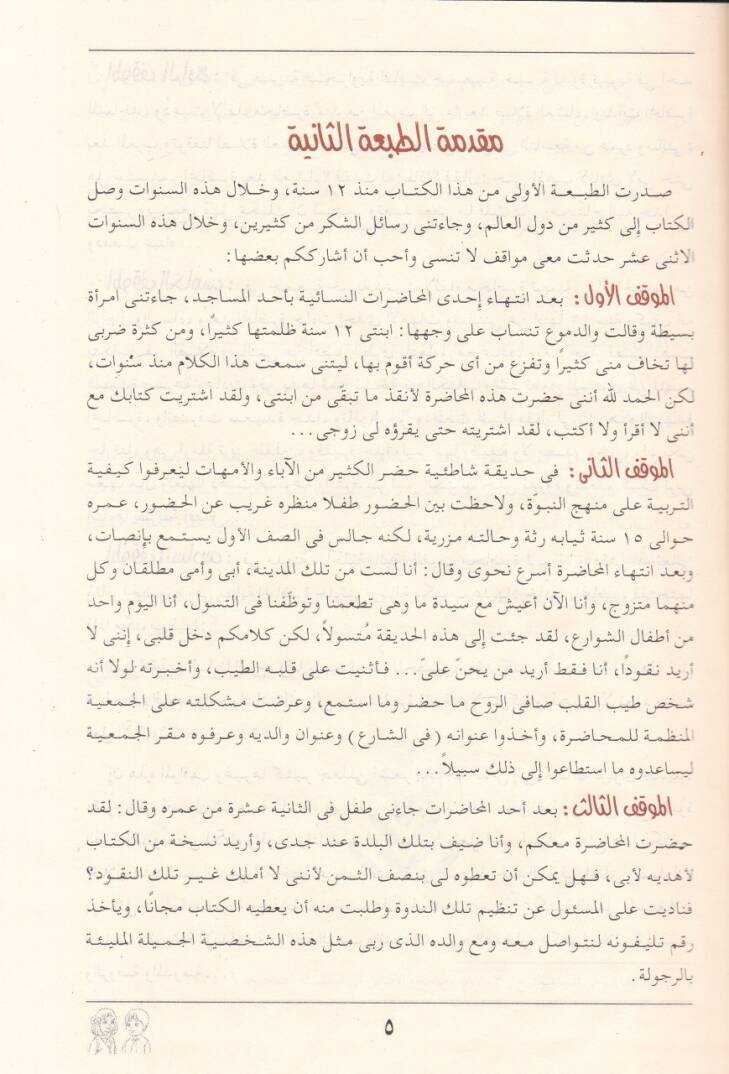 مقدمة الطبعة الثانية
صدرت الطبعة الأولى من هذا الكتاب منذ ١٢ سنة، وخلال هذه السنوات وصل
الكتاب إلى كثير من دول العالم، وجاءتنى رسائل الشكر من كثيرين، وخلال هذه السنوات
الاثنى عشر حدثت معى مواقف لا تنسى وأحب أن أشارككم بعضها:
الموقف الأول: بعد انتهاء إحدى المحاضرات النسائية بأحد المساجد، جاءتنى امرأة
بسيطة وقالت والدموع تنساب على وجهها: ابنتى ١٢ سنة ظلمتها كثيرًا، ومن كثرة ضربى
لها تخاف منى كثيرًا وتفزع من أى حركة أقوم بها، ليتنى سمعت هذا الكلام منذ سنوات،
لكن الحمد لله أننى حضرت هذه المحاضرة لأنقذ ما تبقّى من ابنتى، ولقد اشتريت كتابك مع
أننى لا أقرأ ولا أكتب، لقد اشتريته حتى يقرؤه لى زوجى...
الموقف الثانى: فى حديقة شاطئية حضر الكثير من الآباء والأمهات ليتعرفوا كيفية
التربية على منهج النبوّة، ولاحظت بين الحضور طفلا منظره غريب عن الحضور، عمره
حوالى ١٥ سنة ثيابه رثة وحالته مزرية، لكنه جالس فى الصف الأول يستمع بإنصات،
وبعد انتهاء المحاضرة أسرع نحوى وقال: أنا لست من تلك المدينة، أبى وأمى مطلقان وكل
منهما متزوج، وأنا الآن أعيش مع سيدة ما وهى تطعمنا وتوظّفنا فى التسول، أنا اليوم واحد
من أطفال الشوارع، لقد جئت إلى هذه الحديقة مُتسولاً، لكن كلامكم دخل قلبى، إننى لا
أريد نقودًا، أنا فقط أريد من يحنّ علىّ... فأثنيت على قلبه الطيب، وأخبرته لولا أنه
شخص طيب القلب صافى الروح ما حضر وما استمع، وعرضت مشكلته على الجمعية
المنظمة للمحاضرة، وأخذوا عنوانه (فى الشارع) وعنوان والديه وعرفوه مقر الجمعية
ليساعدوه ما استطاعوا إلى ذلك سبيلاً...
الموقف الثالث: بعد أحد المحاضرات جاءنى طفل فى الثانية عشرة من عمره وقال: لقد
حضرت المحاضرة معكم، وأنا ضيف بتلك البلدة عند جدى، وأريد نسخة من الكتاب
لأهديه لأبى، فهل يمكن أن تعطوه لى بنصف الثمن لأننى لا أملك غير تلك النقود؟
فناديت على المسئول عن تنظيم تلك الندوة وطلبت منه أن يعطيه الكتاب مجانًا، ويأخذ
رقم تليفونه لنتواصل معه ومع والده الذى ربى مثل هذه الشخصية الجميلة المليئة
بالرجولة.
٥